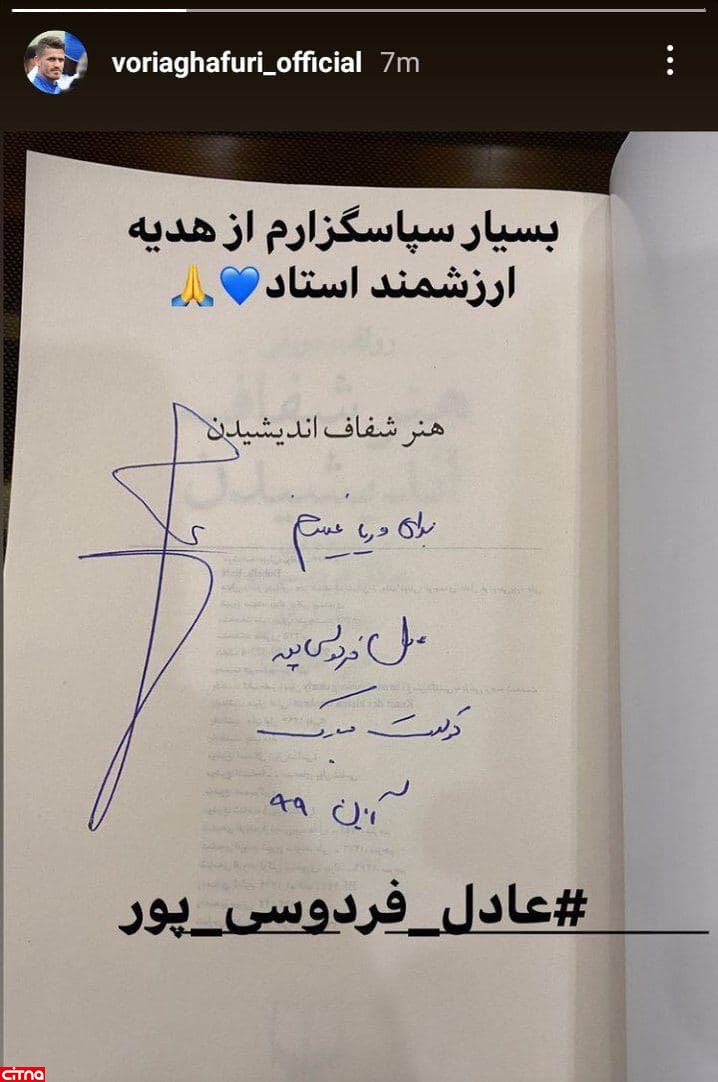 voriaghafuri_official 7m
بسیار سپاسگزارم از هدیه
ارزشمند استاد💙🙏
هنر شفاف اندیشیدن
برای وریا
عادل فردوسی پور
تولدت مبارک
۹۹
#عادل_فردوسی_پور
CITNA